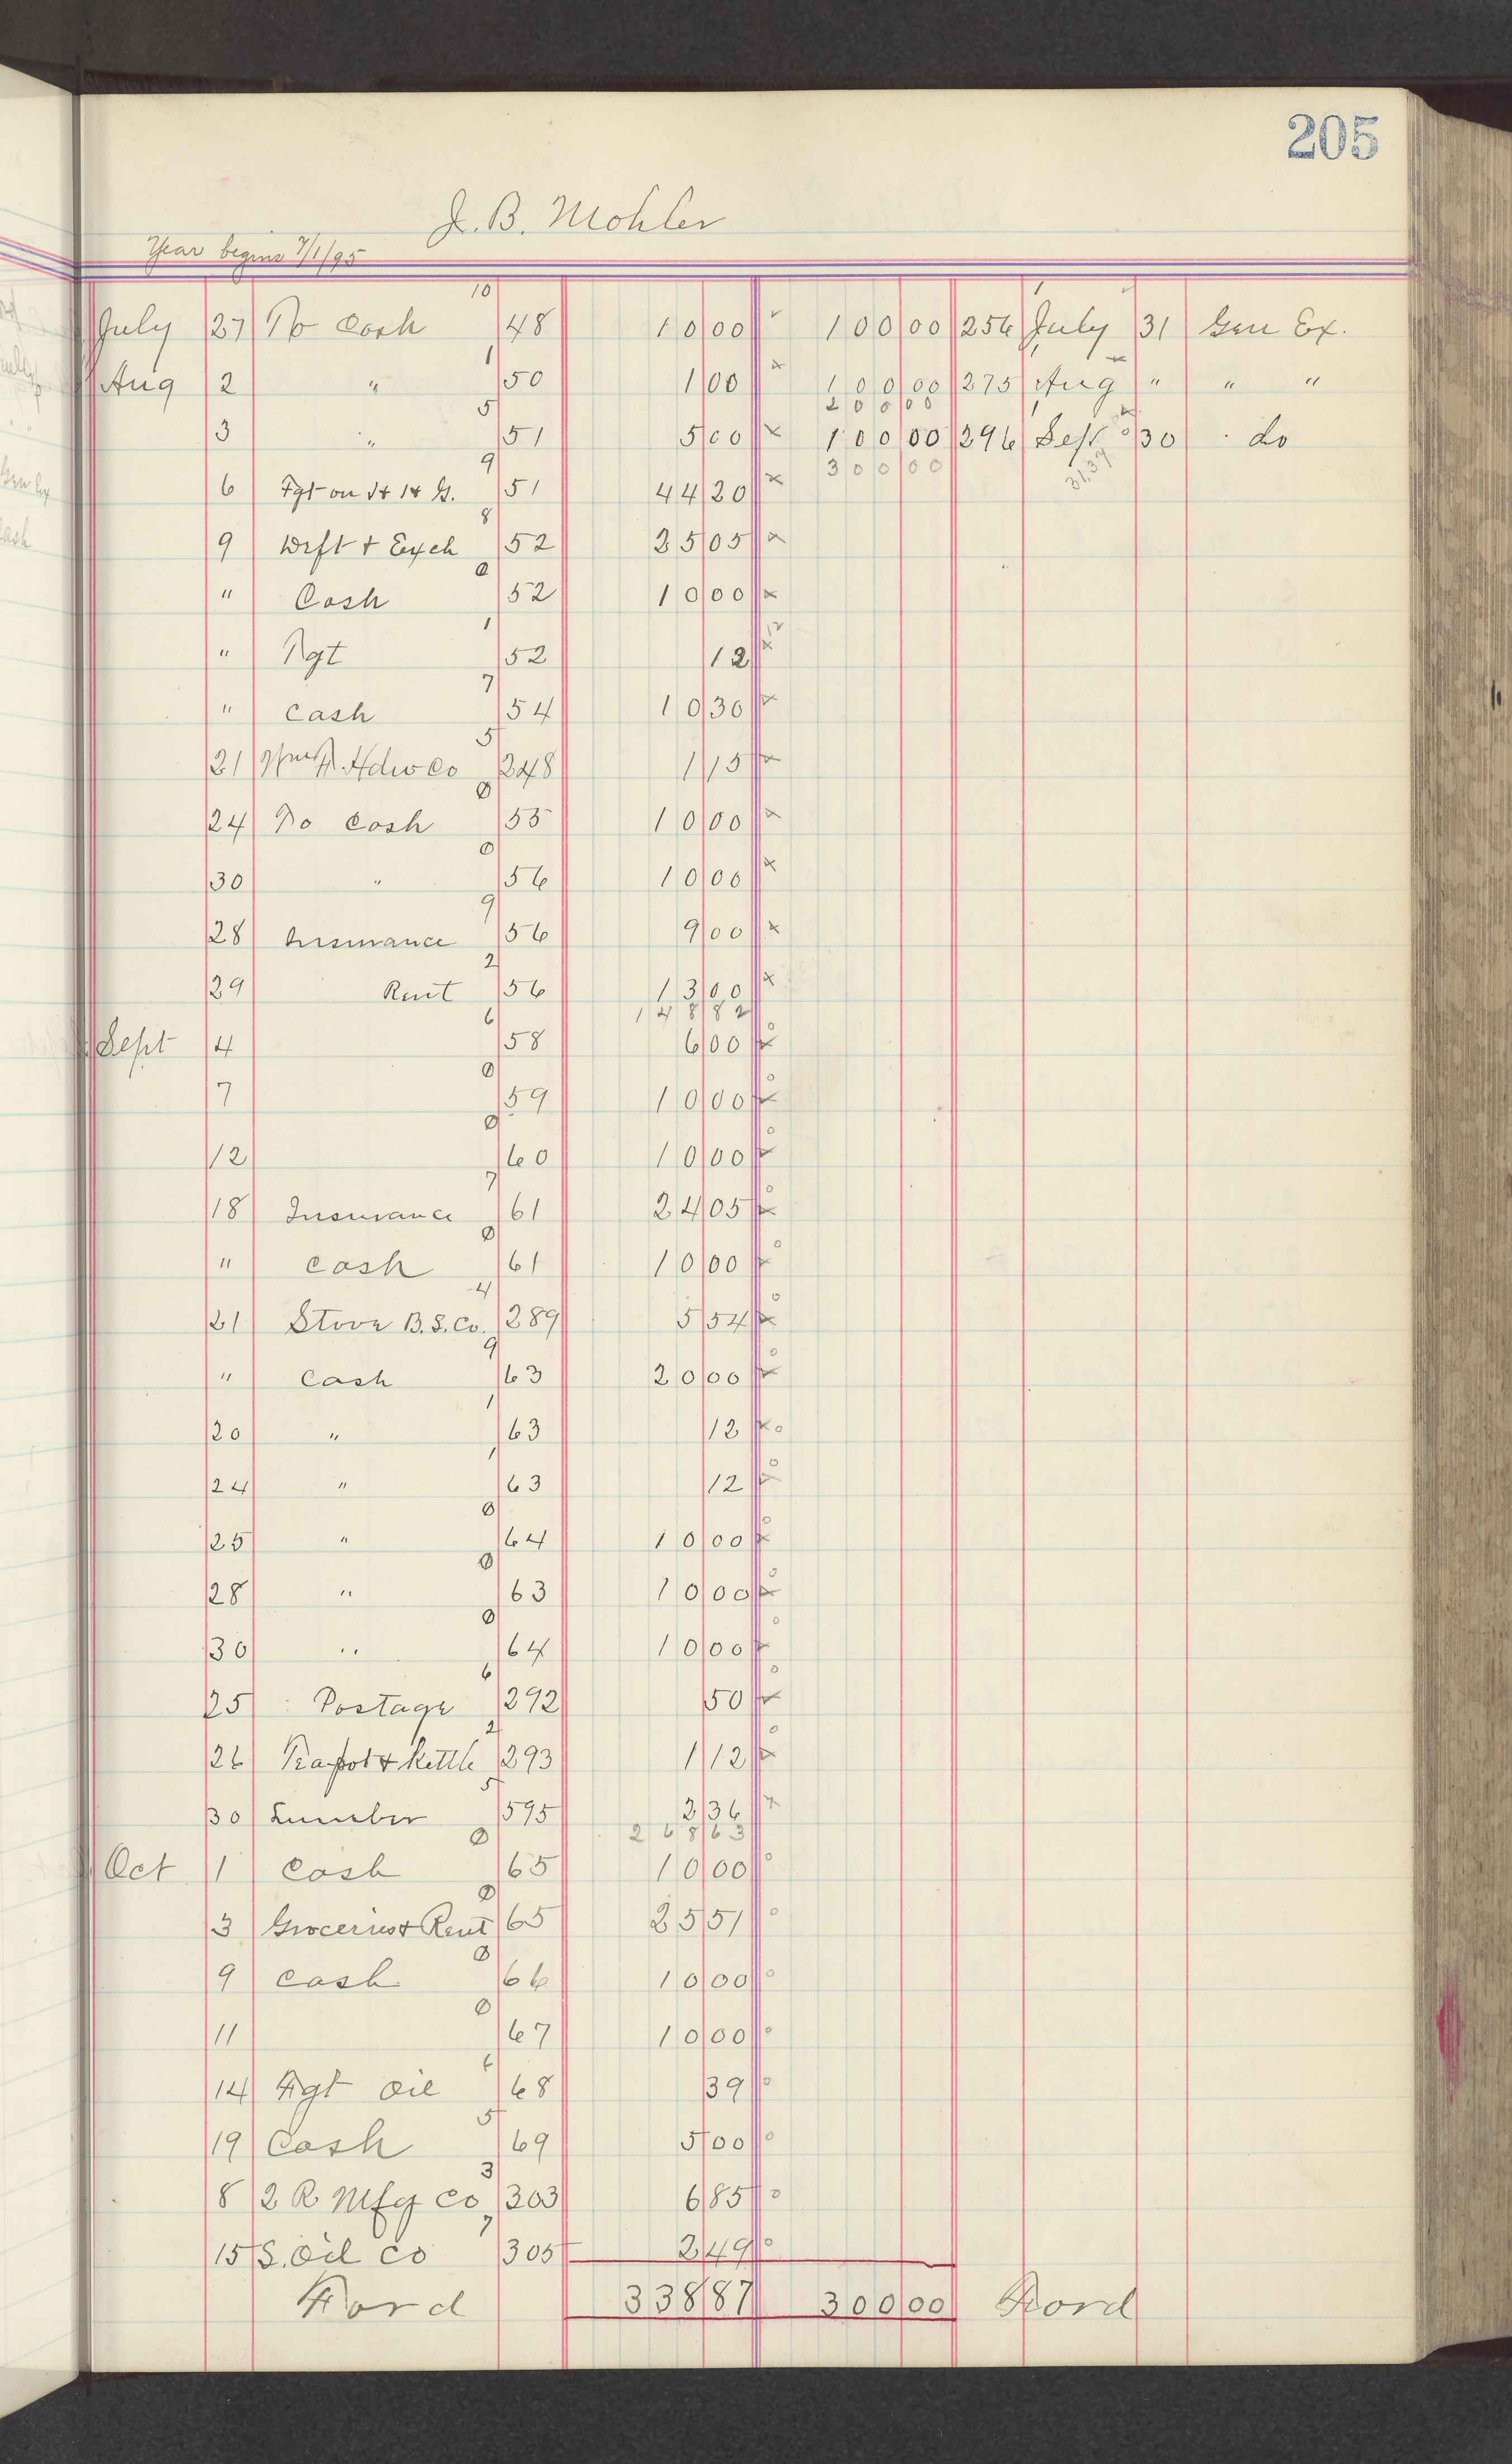 205
J. B. Mohler
Year begins 7/1/95
10
July 27 To Cash 48 10 00 100 00 256 July 31 Gen Ex.
1
Aug 2 " 50 1 00 100 00 275 Aug " " "
5 200 00
3 " 51 5 00 100 00 296 Sept 30 do
9 300 00 31,37
6 Fgt on H H G. 51 44 20
8
9 Drft + Exch 52 25 05
0
" Cash 52 10 00
1
" Fgt 52 12
7
" Cash 54 10 30
5
21 Hdw Co 248 1 15
0
24 To Cash 55 10 00
0
30 " 56 10 00
9
28 Insurance 56 9 00
2
29 Rent 56 13 00
6 148 82
Sept 4 58 6 00
0
7 59 10 00
0
12 60 10 00
7
18 Insurance 61 24 05
0
" Cash 61 10 00
4
21 Stove B. S. Co. 289 5 54
9
" Cash 63 20 00
1
20 " 63 12
1
24 " 63 12
0
25 " 64 10 00
0
28 " 63 10 00
0
30 " 64 10 00
6
25 Postage 292 50
2
26 Teapot + Kettle 293 1 12
5
30 Lumber 595 2 36
0 268 63
Oct 1 Cash 65 10 00
0
3 Groceries + Rent 65 25 51
0
9 Cash 66 10 00
0
11 67 10 00
6
14 Fgt Oil 68 39
5
19 Cash 69 5 00
3
8 2 R Mfg Co 303 6 85
7
15 S. Oil Co 305 2 49
Ford 338 87 300 00 Ford